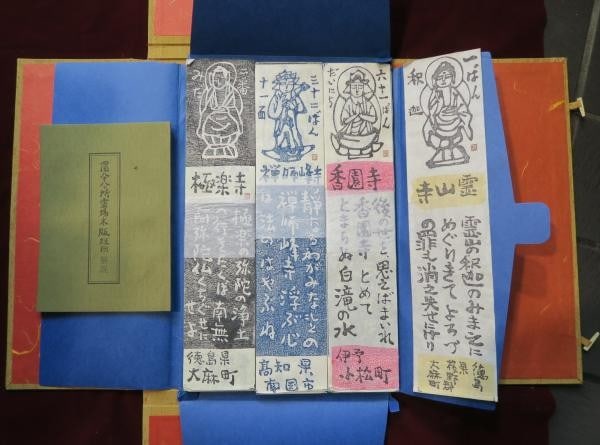 一ばん
釈迦
霊山寺
霊山の釈迦のみまえに
めぐりきてよろづ
の罪も消え失せにけり
徳島県
板野郡
大麻町
六十一ばん
だいにち
香園寺
後の世を思えばまいれ
香園寺とめて
とまらぬ白滝の水
伊予
小松町
三十二ばん
十一面
禅師峰寺
静かなるわがみなもとの
禅師峰寺浮ぶ心
は法のはやふね
高知県
南国市
二番
みだ
極楽寺
極楽の弥陀の浄土
へ行きたくば南無
阿弥陀仏くちぐせに
せよ
徳島県
大麻町
霊場木版
解説